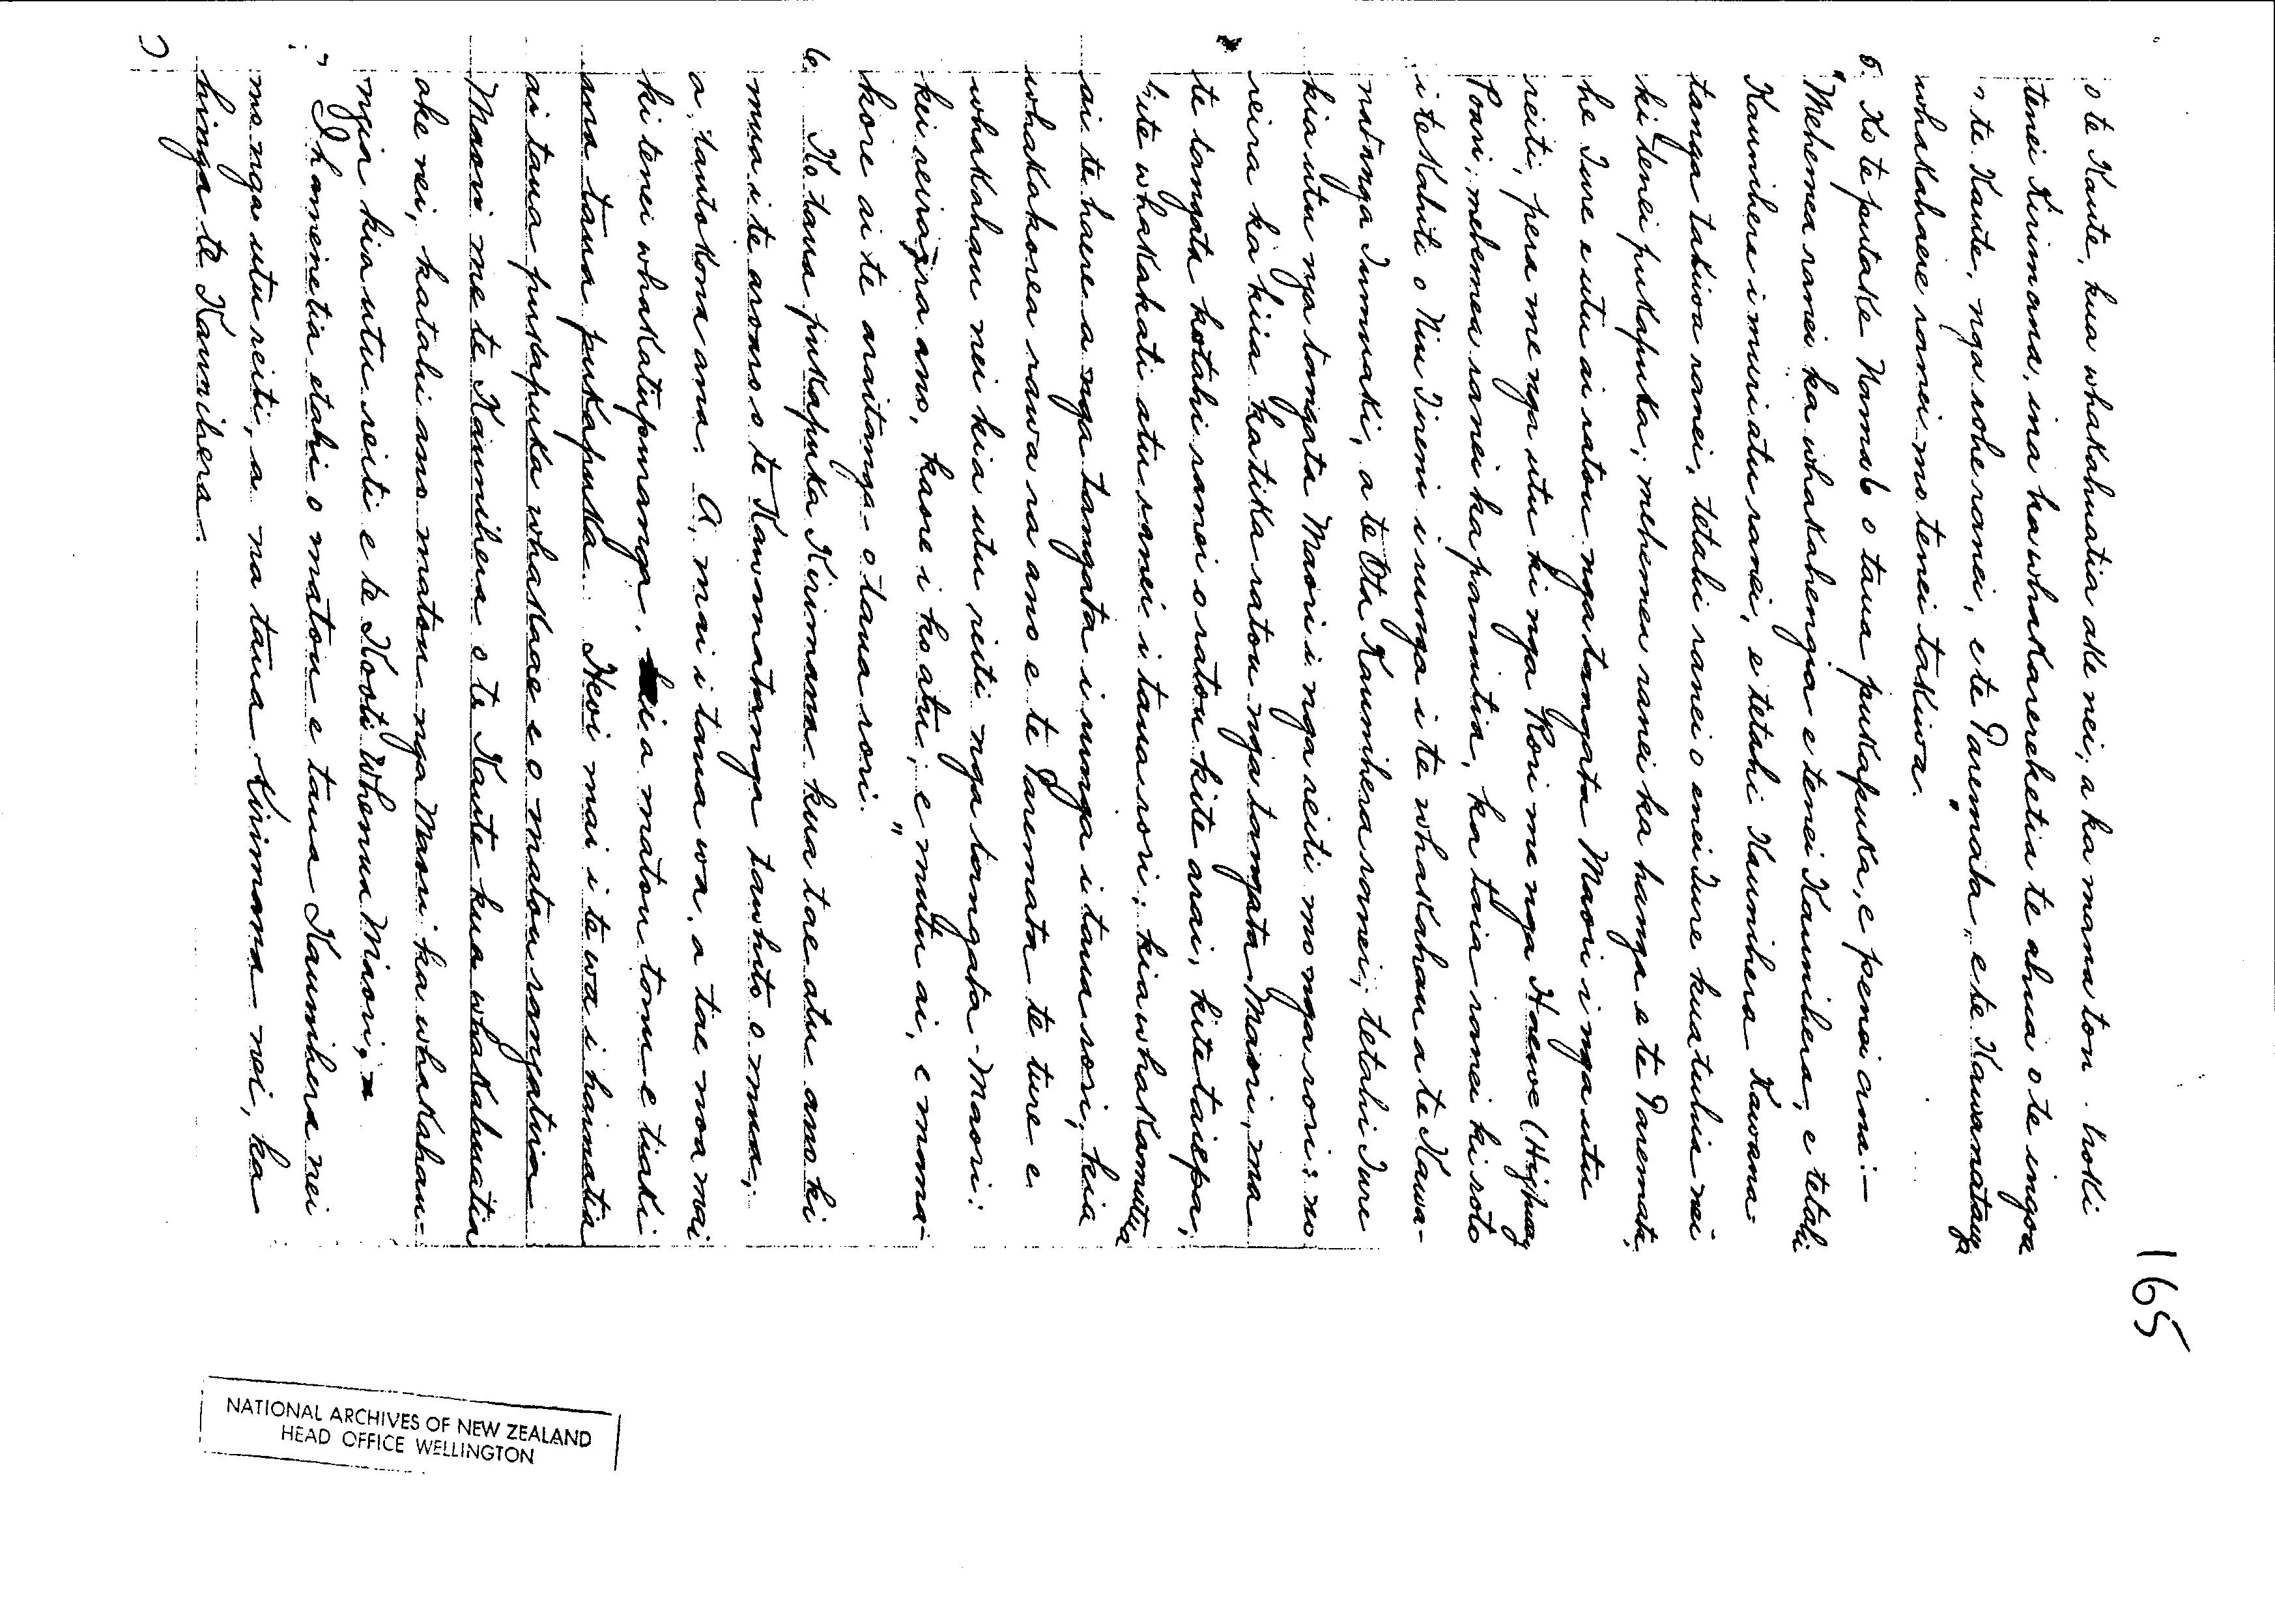 165
o te Kaute, kua whakahuatia ake nei; a ka mana ton. tioki
tenei Kirimana, ina ka whakarereketia te ahua o te ingoa
" te Kaute, nga rohe ranei, e te Paremata, e te Kawanatanga
whakahaere ranei mo tenei takiwa."
5. Ko te putake Nama 6 o taua pukapuka, e penei ana:—
"Mehemea ranei ka whakahengia e tenei Kaunihera, e tetahi
Kaunihera i muri atu ranei, e tetahi Kaunihera Kawana-
tanga takiwa ranei, tetahi ranei o enei Ture kua tuhia nei
ki tenei pukapuka; mehemea ranei ka hanga e te Paremata,
he Ture e utu ai ratou nga tangata Maori i nga utu
reiti, pera me nga utu ki nga Rori me nga Haewe (Highway
Poari; mehemea ranei ka pamitia, ka taia ranei ki roto
i te Kahiti o Niu Tireni i runga i te whakahau a te Kawa-
natanga Tumuaki, a te Ota Kaunihera ranei, tetahi Ture
kia utu nga tangata Maori i nga reiti mo nga rori: no
reira ka kiia ka tika ratou nga tangata Maori, ma
te tangata kotahi ranei o ratou ki te arai, ki te taiepa,
ki te whakakati atu ranei i taua rori; kia whakamutua
ai te haere a nga tangata i runga i taua rori; kia
whakakorea rawa ra ano e te Paremata te ture e
whakahau nei kia utu reiti nga tangata-Maori:
kei reira ra ano, kaore i ko atu, e mutu ai, e mma-
kore ai te araitanga o taua rori."
6. Ko taua pukapuka Kirimana kua tae atu ano ki
mua i te aroaro o te Kawanatanga tawhito o mua,
a, tautokona ana. A, mai i taua wa, a tae noa mai
ki tenei whakatupuranga, kei a matou tonu e tiaki
ana taua pukapuka. Heoi mai i te wa i hainatia
ai taua pukapuka whakaae e o matou rangatira
Maori me te Kaunihera o te Kaute kua whakahuatia
ake nei, katahi ano matou nga Maori ka whakahau-
ngia kia utu reiti e te Kooti Whenua Maori, a
I hamenetia etahi o matou e taua Kaunihera nei
mo nga utu reiti, a na taua Kirimana nei, ka
hinga te Kaunihera.
NATIONAL ARCHIVES OF NEW ZEALAND
HEAD OFFICE WELLINGTON